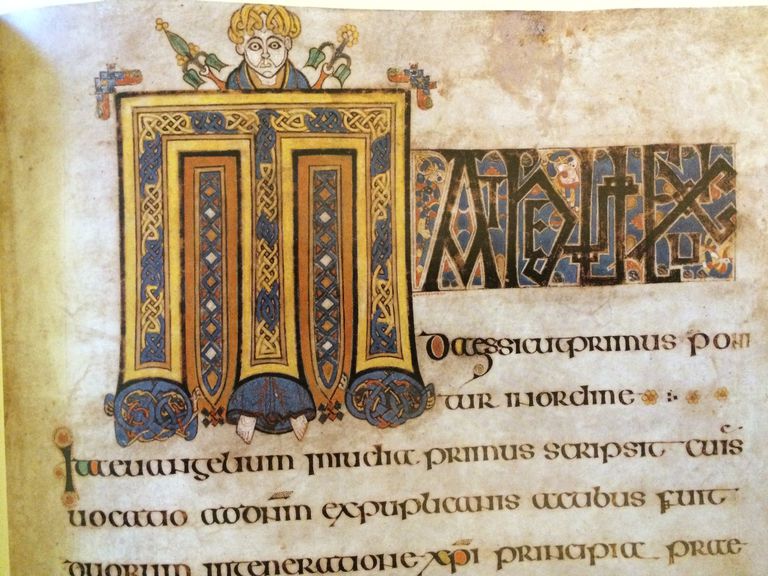 MATHEUS EX IU
daes sicut primus poni
tur inordine
Ita euangelium iniudia primus scripsit cuis
uocatio addnm expuplicanis actibus fuit
duorum ingeneratione xpi principia prae